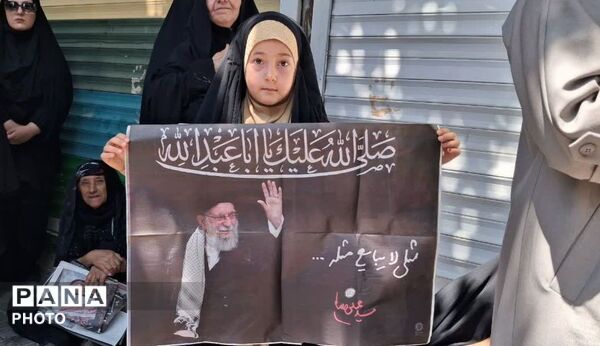 صلى الله عليك يا اباعبدالله
مثلی لا یبایع مثله...
PANA
PHOTO